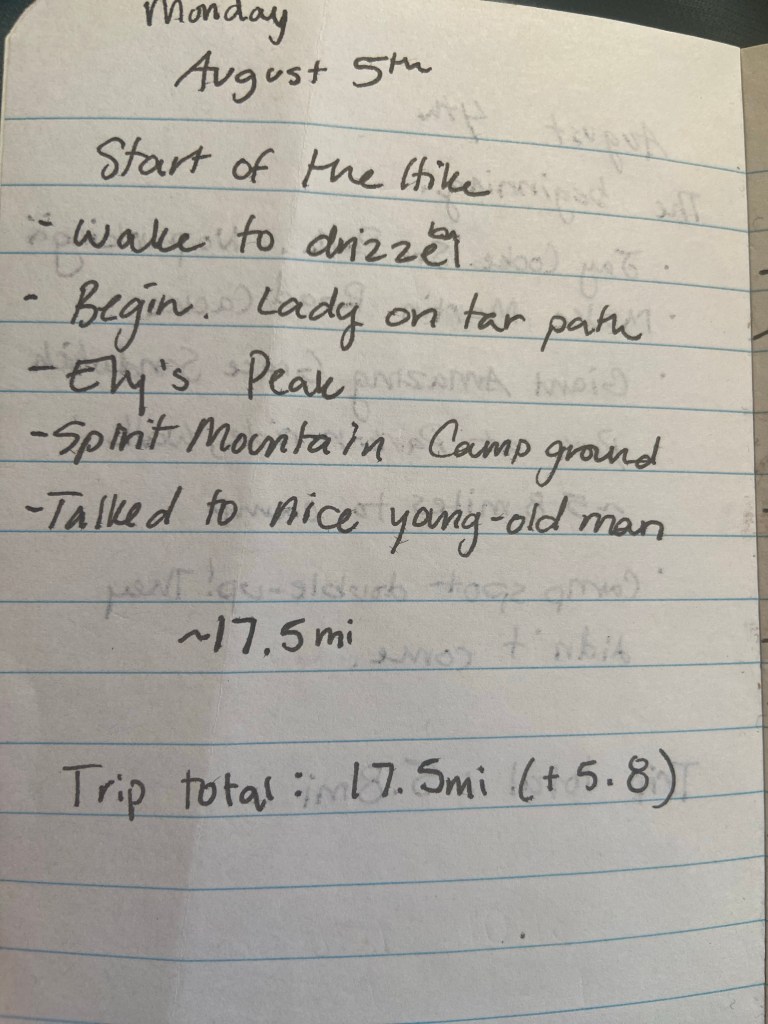 Monday
August 5th
Start of the Hike
- Wake to drizzel
- Begin. Lady on tar path
- Ely's Peak
- Spirit Mountain Campground
- Talked to nice young-old man
~17.5 mi
Trip total: 17.5mi (+5.8)